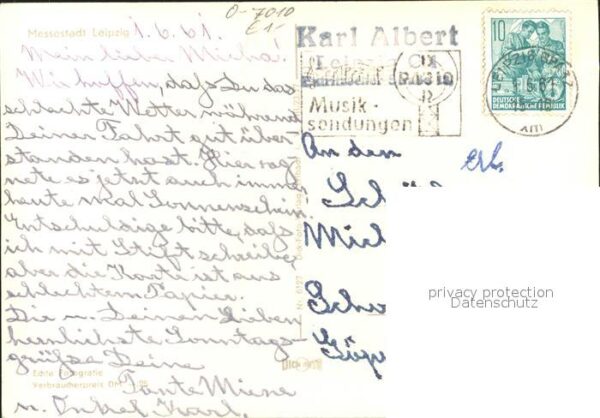 Messestadt Leipzig
O-7010
E1-
1.6.61.
Mein lieber Micha!
Wir hoffen, daß Du das
schlechte Wetter während
Deiner Fahrt gut über-
standen hast. Hier reg-
nete es jetzt auch immer
heute mal Sonnenschein.
Entschuldige bitte, daß
ich mit Stift schreibe,
aber die Karte ist aus
schlechtem Papier.
Dir u. Deinen Lieben
herzlichste Sonntags-
grüße Deine
Tante Miene
u. Onkel Karl.
Echte Fotografie
Verbraucherpreis DM
Karl Albert
Leipzig C1
Musik-
sendungen
10
DEUTSCHE
DEMOKRATISCHE REPUBLIK
An den
Erl.
Sch
Mich
Scho
privacy protection
Datenschutz